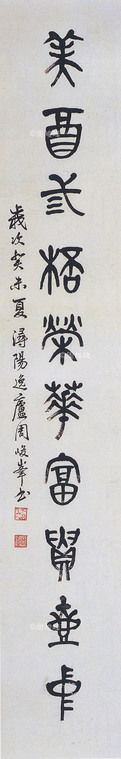 美酒三桮榮華富貴壺中
歲次癸未夏潯陽逸廬周峻峯書